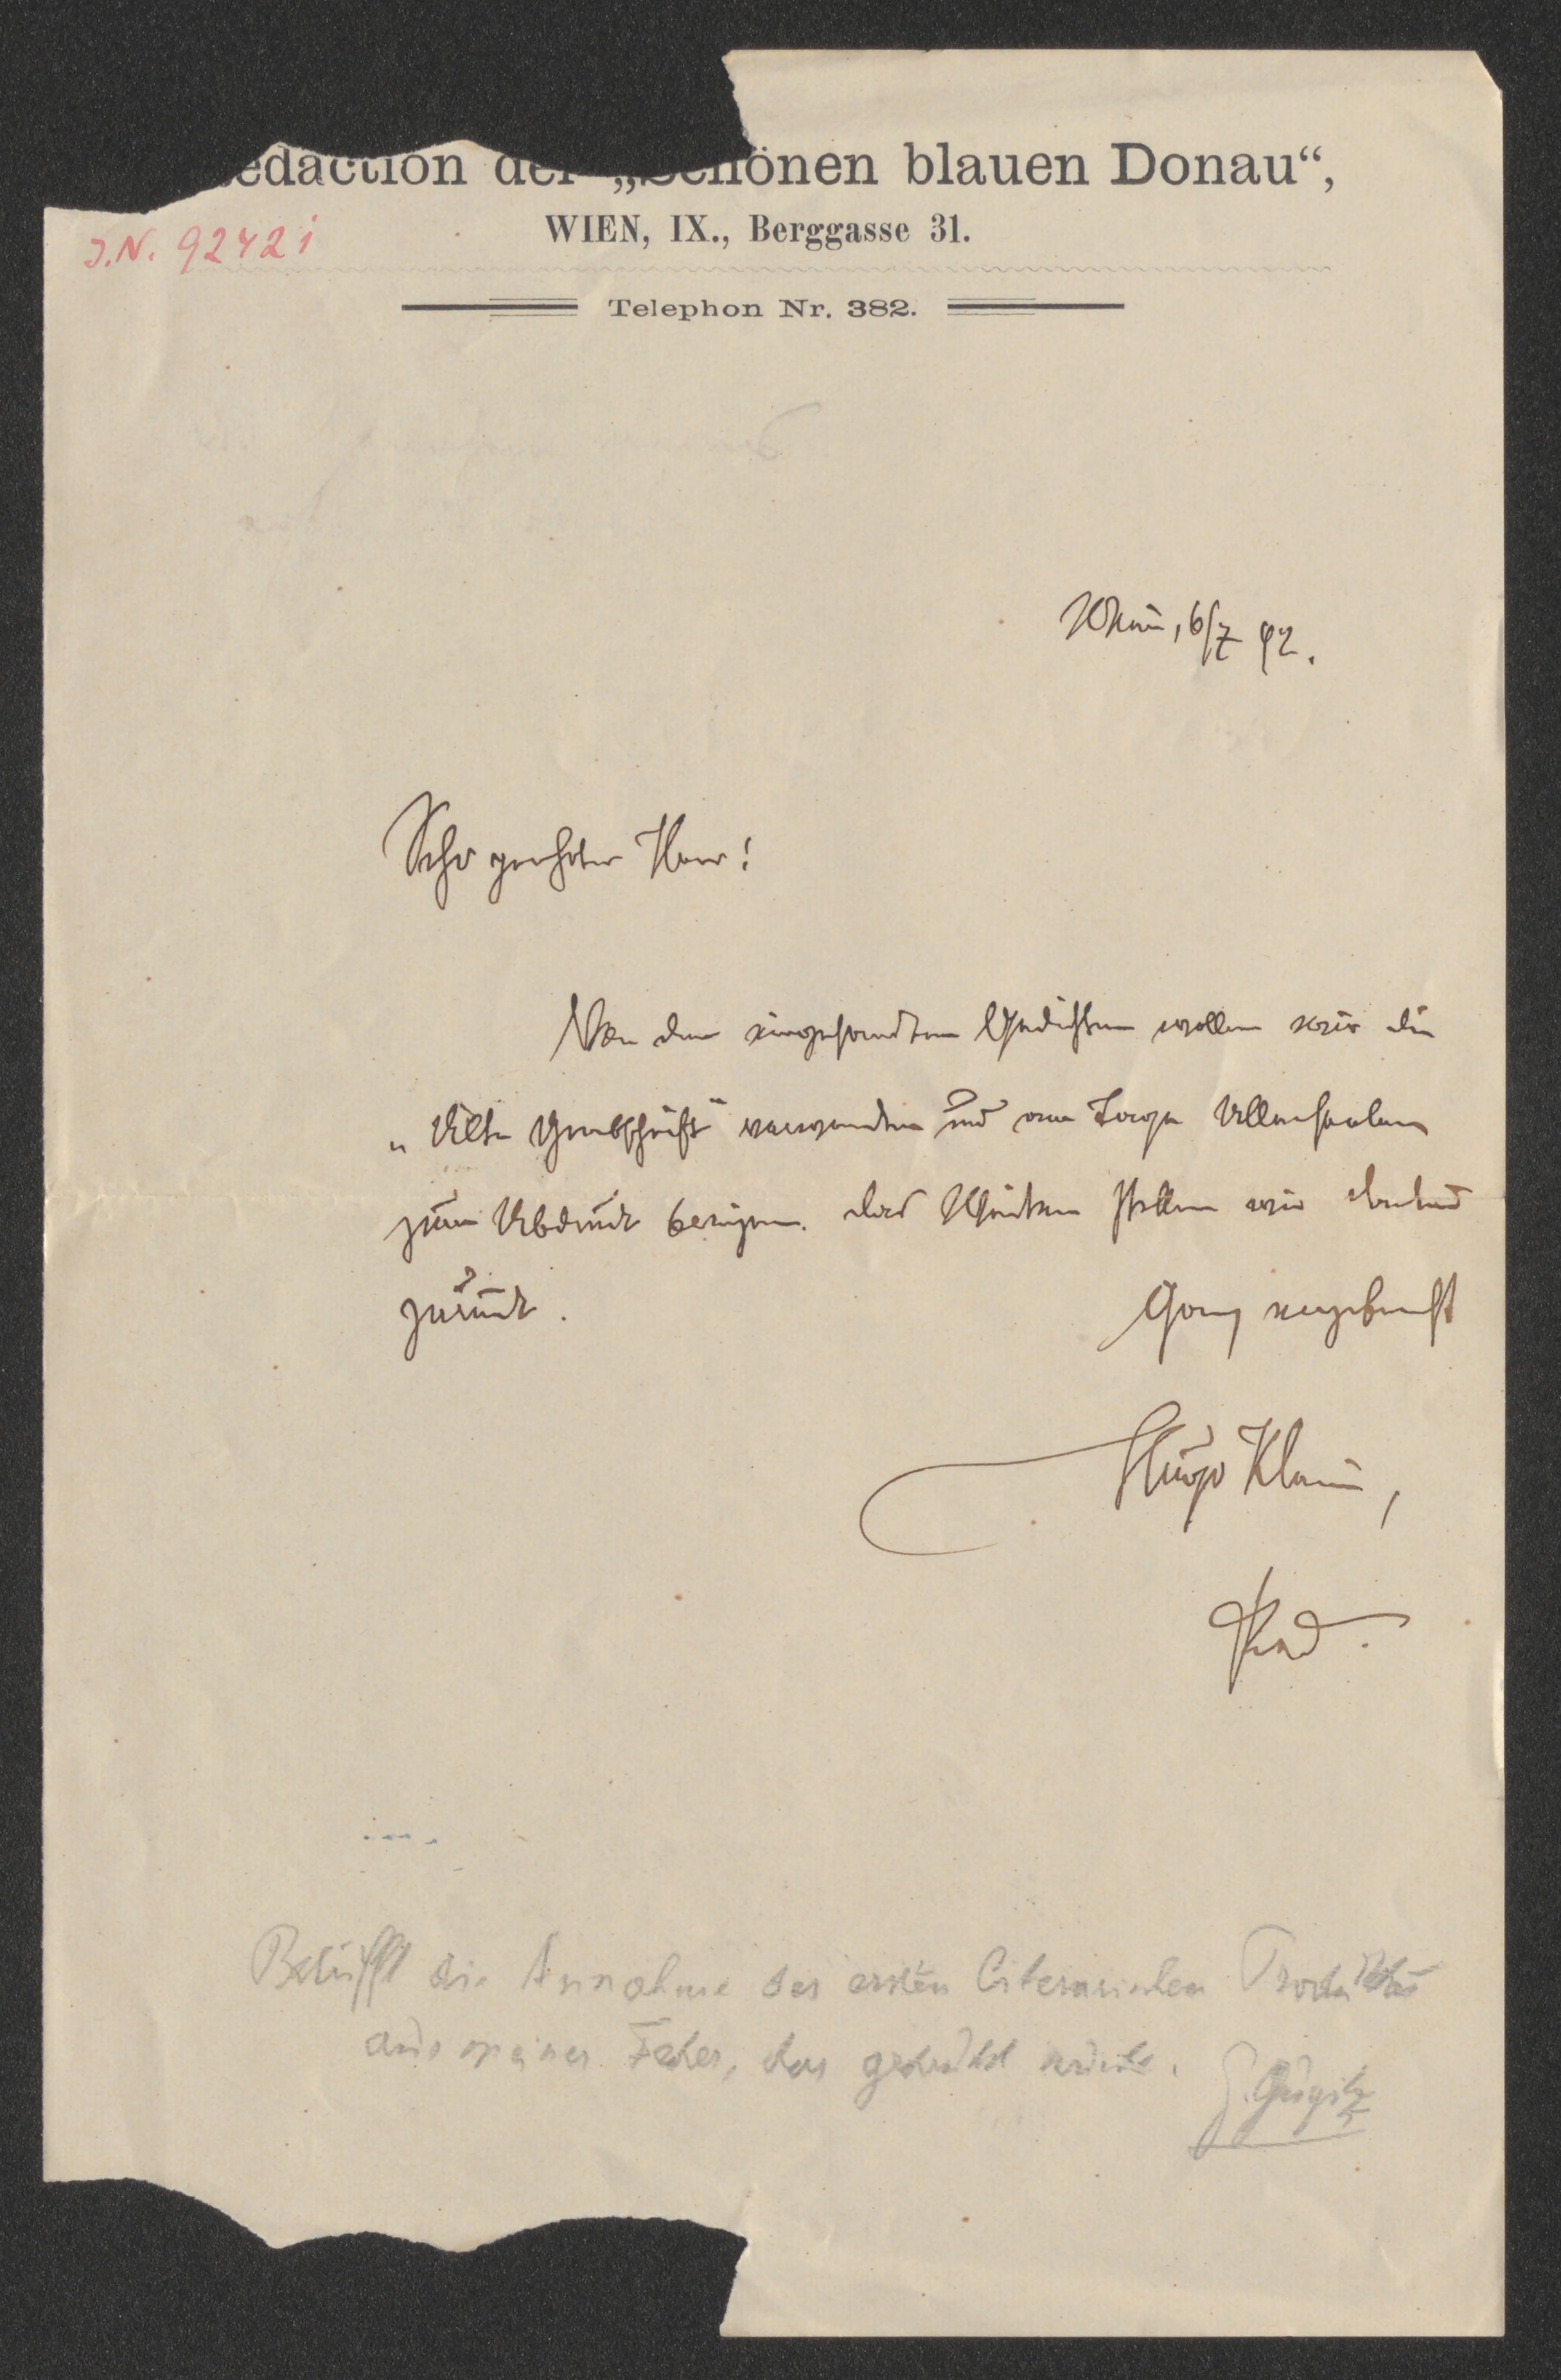 edaction der „Schönen blauen Donau“,
J.N. 92421
WIEN, IX., Berggasse 31.
Telephon Nr. 382.
Wien, 6/7 92.
Sehr geehrter Herr!
Von den eingesandten Gedichten wollen wir die
„Alte Grabschrift“ verwenden und am Tage Allerseelen
zum Abdruck bringen. Das Weitere stellen wir dankend
zurück.
Ganz ergebenst
Hugo Klein,
Red.
Betrifft die Annahme des ersten literarischen Produktes
aus meiner Feder, das gedruckt wurde.
G. Gugitz